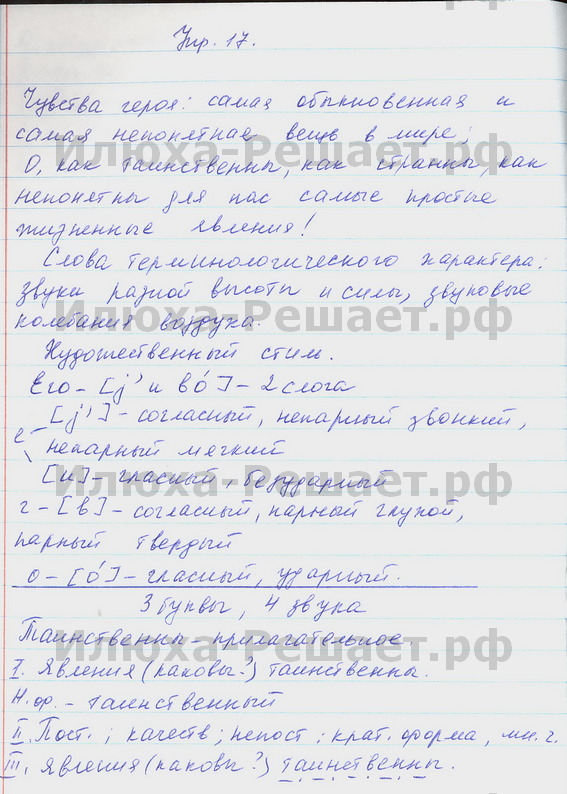 Упр. 17.
Чувства героя: самая обыкновенная и
самая непонятная вещь в мире;
О, как таинственны, как странны, как
непонятны для нас самые простые
жизненные явления!
Слова терминологического характера:
звуки разной высоты и силы, звуковые
колебания воздуха.
Художественный стиль.
Его – [j' и во́] – 2 слога
[j'] – согласный, непарный звонкий,
е
непарный мягкий
[и] – гласный, безударный
г – [в] – согласный, парный глухой,
парный твердый
о – [о́] – гласный, ударный.
3 буквы, 4 звука
Таинственны – прилагательное.
I. Явления (каковы?) таинственны.
Н.ф. – таинственный
II. Пост.; качеств; непост.: крат. форма, мн. ч.
III. Явления (каковы?) таинственны.
Илюха-Решает.рф
Илюха-Решает.рф
Илюха-Решает.рф
Илюха-Решает.рф
Илюха-Решает.рф